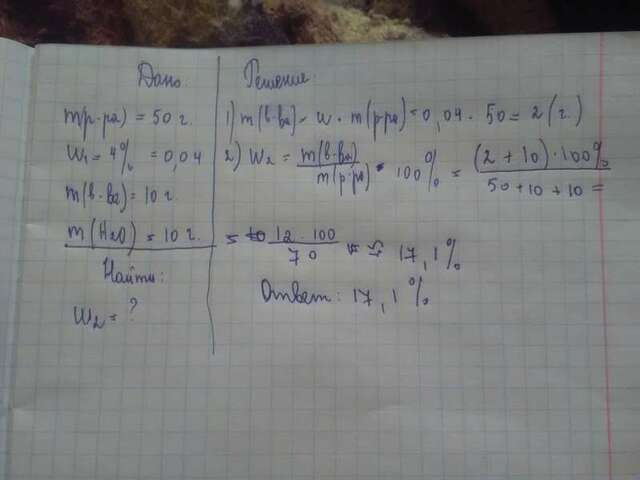 Дано:
m(р-ра) = 50 г.
W₁ = 4% = 0,04
m(в-ва) = 10 г.
m(H₂O) = 10 г.
Найти:
W₂ = ?
Решение:
1) m(в-ва) = w · m(р-ра) = 0,04 · 50 = 2 (г.)
2) W₂ = m(в-ва) / m(р-ра) · 100% = (2 + 10) · 100% / 50 + 10 + 10 =
= 12 · 100 / 70 ≈ 17,1%
Ответ: 17,1%